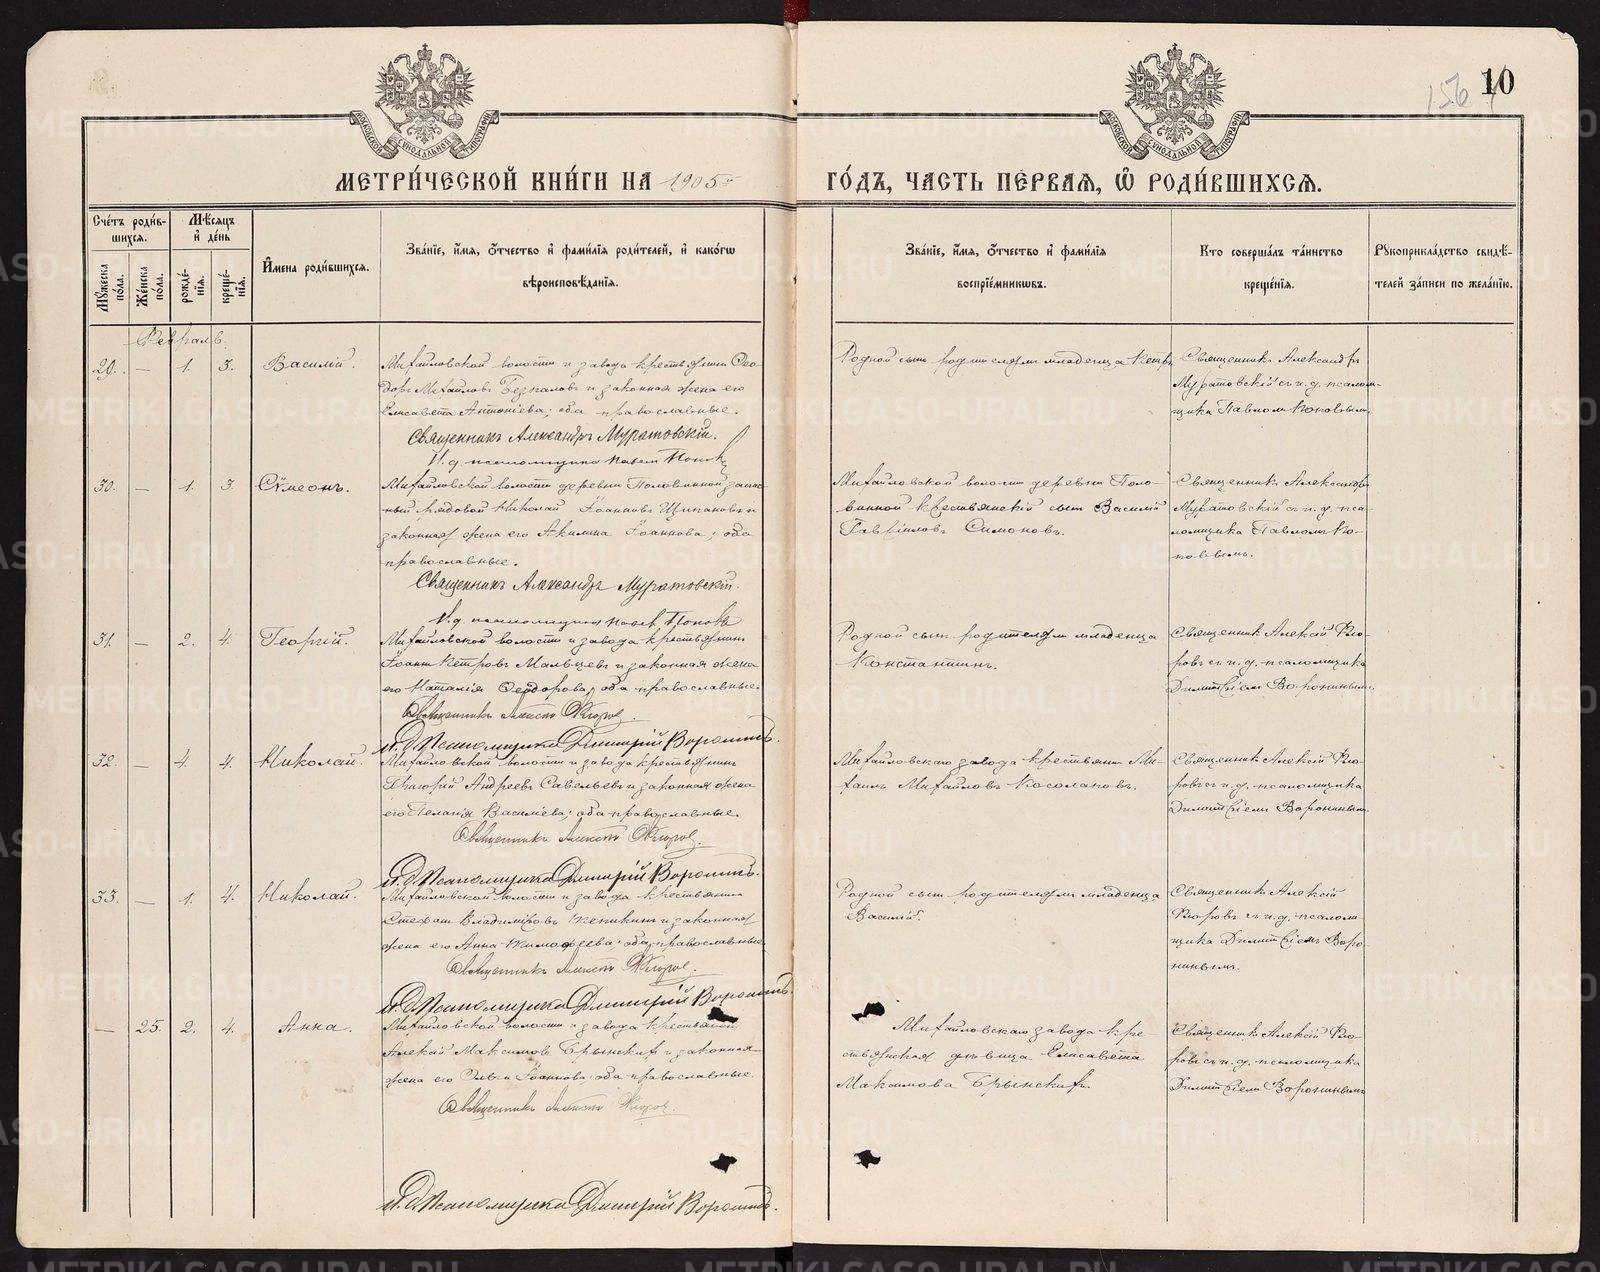 156
10
МОСКОВСКОЙ СѴНОДАЛЬНОЙ ТИПОГРАФІИ
МОСКОВСКОЙ СѴНОДАЛЬНОЙ ТИПОГРАФІИ
МЕТРИ́ЧЕСКОЙ КНИ́ГИ НА 1905й
ГО́ДЪ, ЧАСТЬ ПЕ́РВАЯ, Ѿ РОДИ́ВШИХСЯ.
Сче́тъ роди́в-
шихся.
Мѣ́сяцъ
и҆ де́нь
Мꙋ́жеска по́ла.
Же́нска по́ла.
рожде́-
нїя.
креще́-
нїя.
И҆мена роди́вшихся.
Зва́нїе, и҆́мя, ѻ҆́тчество и҆ фами́лїя роди́телей, и҆ како́гѡ
вѣроисповѣ́данїя.
Зва́нїе, и҆́мя, ѻ҆́тчество и҆ фами́лїя
воспрїе́мникѡвъ.
Кто соверша́лъ та́инство
креще́нїя.
Рꙋкоприкла́дство свидѣ́-
телей за́писи по жела́нїю.
Февраль.
29. — 1. 3. Василій.
Михайловской волости и завода крестьянинъ Ѳео-
доръ Михайловъ Безпаловъ и законная жена его
Елисавета Антоніева; оба православные.
Священникъ Александръ Муратовскій.
И. д. псаломщика Павелъ Поповъ
Родной сынъ родителямъ младенца Петръ
Священникъ Александръ
Муратовскій съ и. д. псалом-
щика Павломъ Поповымъ.
30. — 1. 3. Сѵмеонъ.
Михайловской волости деревни Половинной запас-
ный рядовой Николай Іоанновъ Щипановъ и
законная жена его Акилина Іоаннова; оба
православные.
Священникъ Александръ Муратовскій.
И. д. псаломщика Павелъ Поповъ
Михайловской волости деревни Поло-
винной крестьянскій сынъ Василій
Гавріиловъ Симоновъ.
Священникъ Александръ
Муратовскій съ и. д. пса-
ломщика Павломъ По-
повымъ.
31. — 2. 4. Георгій.
Михайловской волости и завода крестьянинъ
Іоаннъ Петровъ Мальцевъ и законная жена
его Наталія Ѳеодорова; оба православные.
Священникъ Алексій Флоровъ.
И. д. Псаломщика Димитрій Воронинъ.
Родной сынъ родителямъ младенца
Константинъ.
Священникъ Алексій Фло-
ровъ съ и. д. псаломщика
Димитріемъ Воронинымъ.
32. — 4. 4. Николай.
Михайловской волости и завода крестьянинъ
Григорій Андреевъ Савельевъ и законная жена
его Пелагія Василіева; оба православные.
Священникъ Алексій Флоровъ.
И. д. Псаломщика Димитрій Воронинъ.
Михайловскаго завода крестьянинъ Ми-
хаилъ Михайловъ Косолаповъ.
Священникъ Алексій Фло-
ровъ съ и. д. псаломщика
Димитріемъ Воронинымъ.
33. — 1. 4. Николай.
Михайловской волости и завода крестьянинъ
Стефанъ Владиміровъ и законная
жена его Анна Тимоѳеева; оба православные.
Священникъ Алексій Флоровъ.
И. д. Псаломщика Димитрій Воронинъ.
Родной сынъ родителямъ младенца
Василій.
Священникъ Алексій
Флоровъ съ и. д. псалом-
щика Димитріемъ Воро-
нинымъ.
— 25. 2. 4. Анна.
Михайловской волости и завода крестьянинъ
Алексій Максимовъ Брынскихъ и законная
жена его Ольга Іоаннова; оба православные.
Священникъ Алексій Флоровъ.
И. д. Псаломщика Димитрій Воронинъ.
Михайловскаго завода кре-
стьянская дѣвица Елисавета
Максимова Брынскихъ.
Священникъ Алексій Фло-
ровъ съ и. д. псаломщика
Димитріемъ Воронинымъ
METRIKI.GASO-URAL.RU